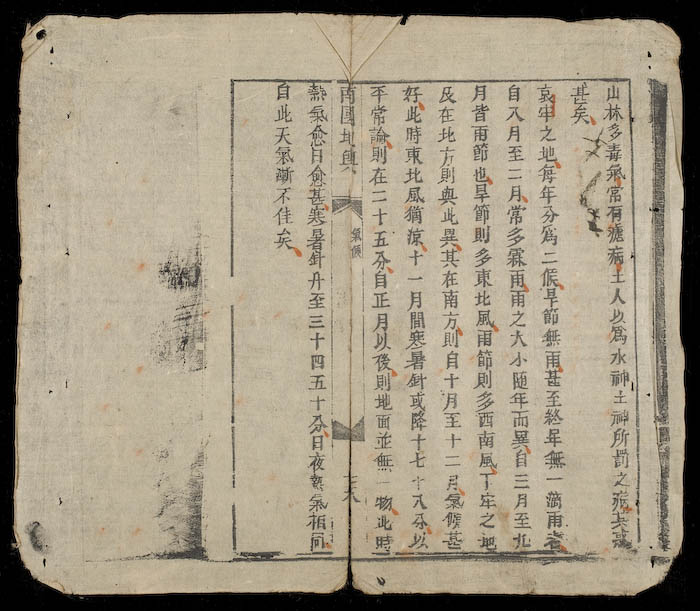 山林多毒氣常有瘧病土人以爲水神土神所罰之其惑
甚矣
哀牢之地每年分爲二候旱節無雨甚至終年無一滴雨者
自八月至二月常多霖雨雨之大小隨年而異自三月至九
月皆雨節也旱節則多東北風雨節則多西南風丁牢之地
及在北方則與此異其在南方則自十月至十二月氣候甚
好此時東北風猶涼十一月間寒暑針或降十七十八分以
平常論則在二十五分自正月以後則地面並無一物此時
南國地輿 氣候 十八
熱氣愈日愈甚寒暑針升至三十四五十分日夜熱氣相同
自此天氣漸不佳矣